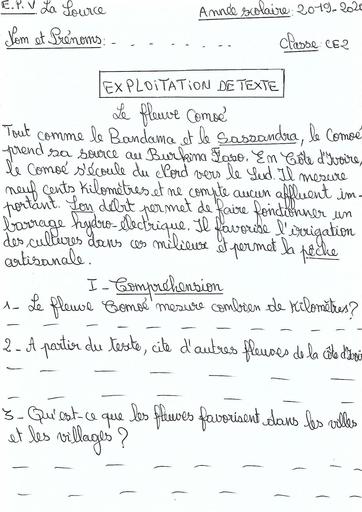 E.P.V La Source Année scolaire: 2019-2020
Nom et Prénoms: - - - - - - - Classe: CE2
EXPLOITATION DE TEXTE
Le fleuve Comoé
Tout comme le Bandama et le Sassandra, le Comoé
prend sa source au Burkina Faso. En Côte d'Ivoire,
le Comoé s'écoule du Nord vers le Sud. Il mesure
neuf cents Kilomètres et ne compte aucun affluent im-
portant. Son débit permet de faire fonctionner un
barrage hydro-électrique. Il favorise l'irrigation
des cultures dans ces milieux et permet la pêche
artisanale.
I - Compréhension
1- Le fleuve Comoé mesure combien de Kilomètres?
2- A partir du texte, cite d'autres fleuves de la côte d'Ivoire
3- Qu'est-ce que les fleuves favorisent dans les villes
et les villages ?